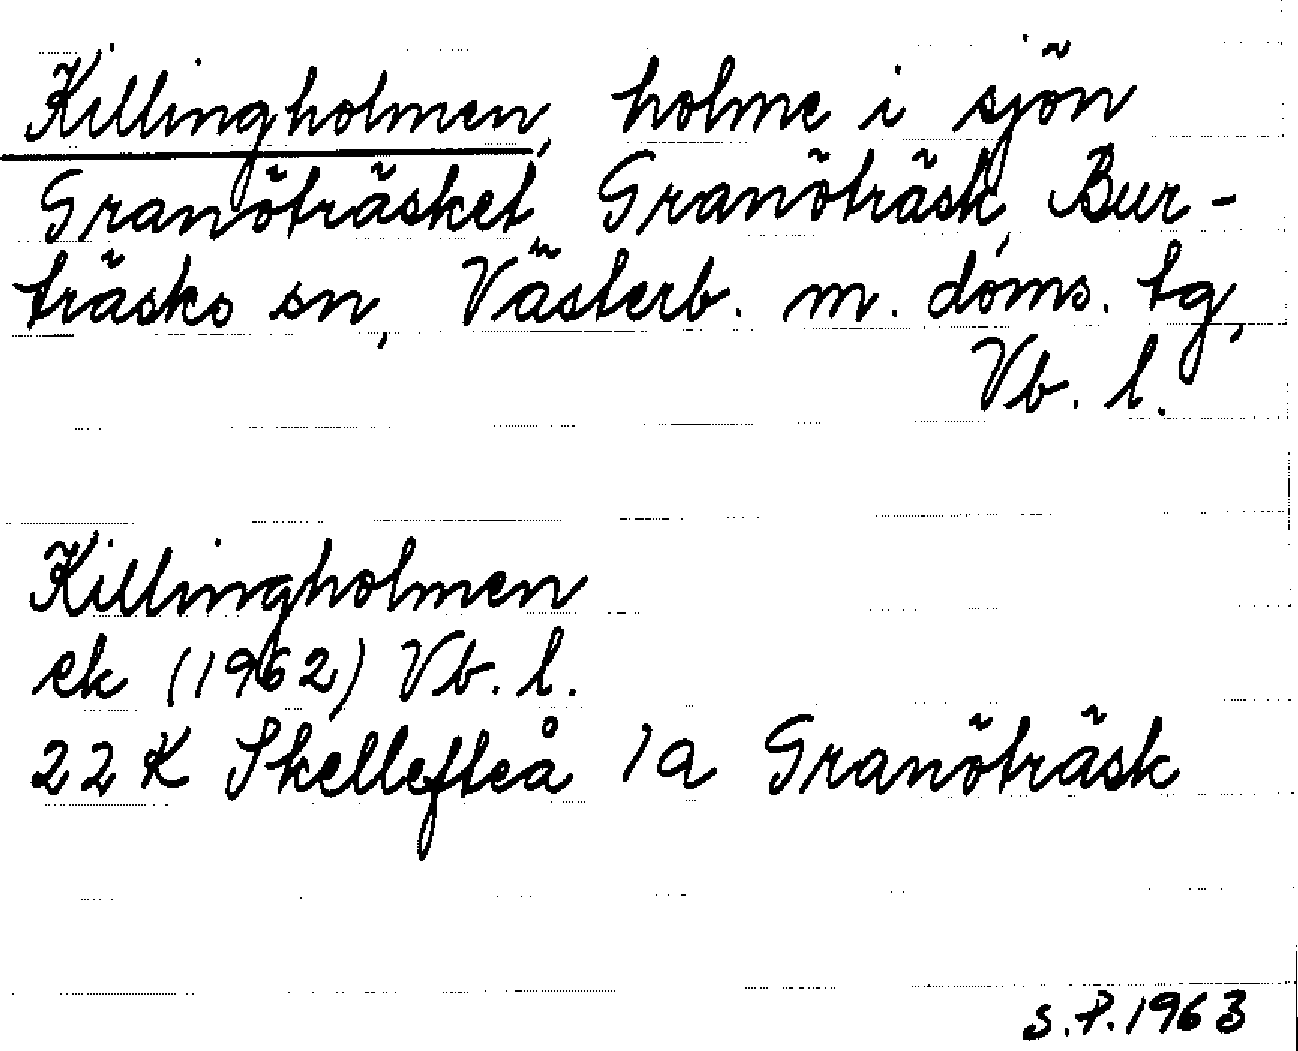 Killingholmen, holme i sjön
Granöträsket, Granöträsk, Bur-
träsks sn, Västerb. m. doms. tg,
Vb. l.
Killingholmen
ek (1962) Vb. l.
22 K Skellefteå 1a Granöträsk
S.P. 1963